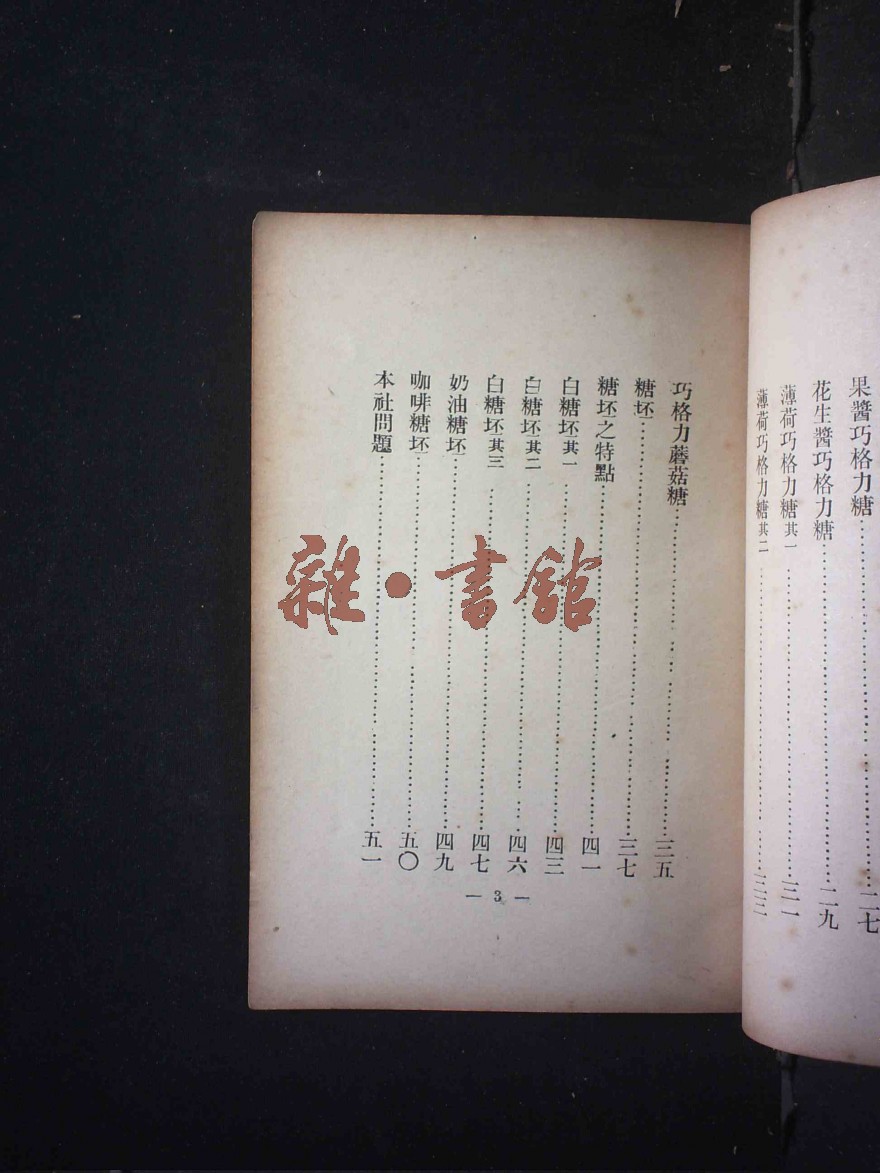 果醬巧格力糖……二七
花生醬巧格力糖……二九
薄荷巧格力糖其一……三一
薄荷巧格力糖其二……三三
巧格力蘑菇糖……三五
糖坯……三七
糖坯之特點……四一
白糖坯其一……四三
白糖坯其二……四六
白糖坯其三……四七
奶油糖坯……四九
咖啡糖坯……五〇
本社問題……五一
— 3 —
雜·書館